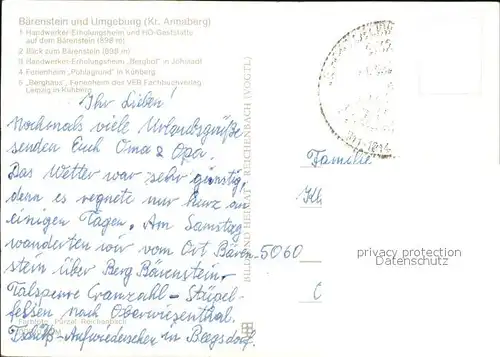 Bärenstein und Umgebung (Kr. Annaberg)
1 Handwerker-Erholungsheim und HO-Gaststätte
auf dem Bärenstein (898 m)
2 Blick zum Bärenstein (898 m)
3 Handwerker-Erholungsheim „Berghof" in Jöhstadt
4 Ferienheim „Pöhlagrund" in Kühberg
5 „Berghaus", Ferienheim des VEB Fachbuchverlag
Leipzig in Kühberg
Ihr Lieben!
Nochmals viele Urlaubsgrüße
senden Euch Oma & Opa.
Das Wetter war sehr günstig,
denn es regnete nur kurz an
einigen Tagen. Am Samstag
wanderten wir vom Ort Bären-
stein über Berg Bärenstein,
Talsperre Cranzahl –
felsen nach Oberwiesenthal.
Tschüß – Aufwiedersehen in
Farbfoto: Pürzel, Reichenbach
BILD UND HEIMAT REICHENBACH (VOGTL)
Familie
5060
privacy protection
Datenschutz